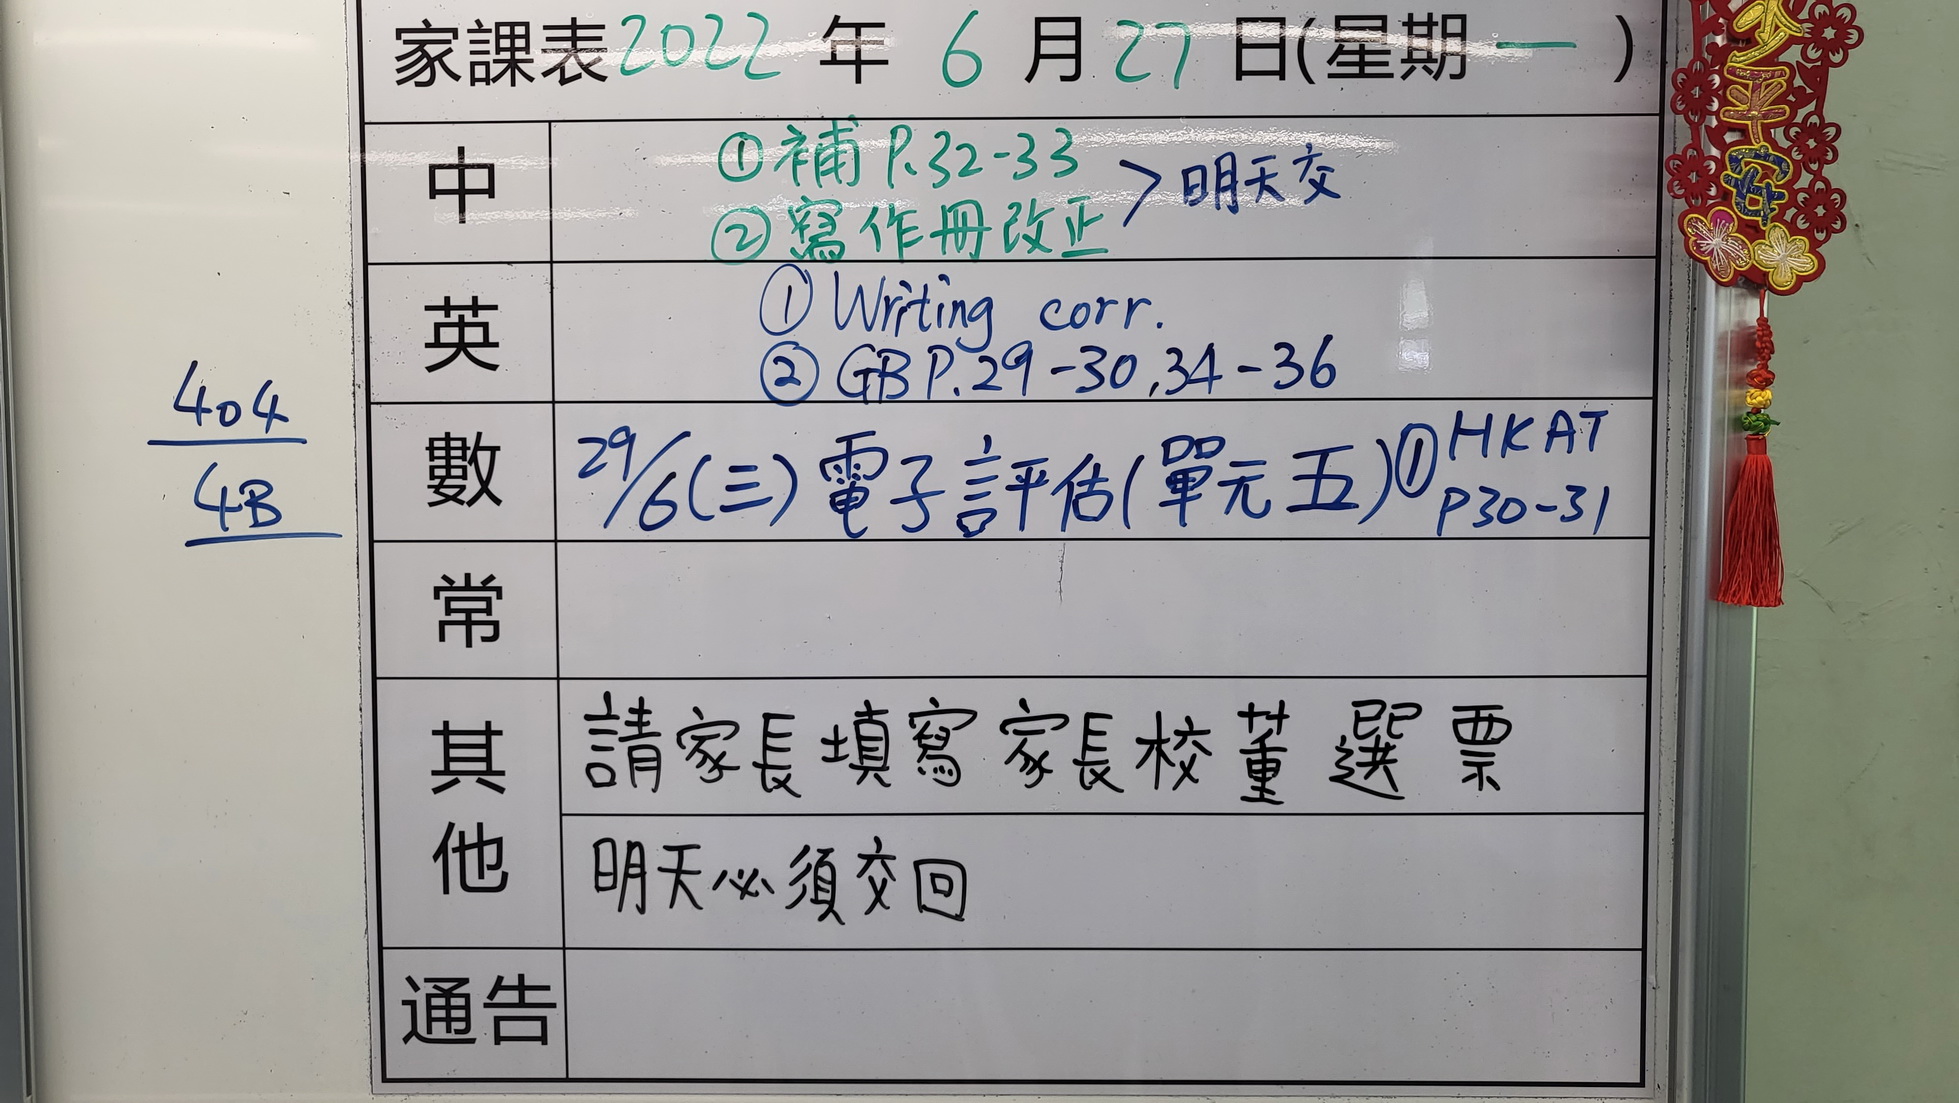 家課表2022年6月27日(星期一)
中
①補P.32-33
②寫作冊改正
>明天交
英
①Writing corr.
②GB P.29-30,34-36
數
29/6(三)電子評估(單元五)①HKAT
P30-31
常
其他
請家長填寫家長校董選票
明天必須交回
通告
404
4B
平安